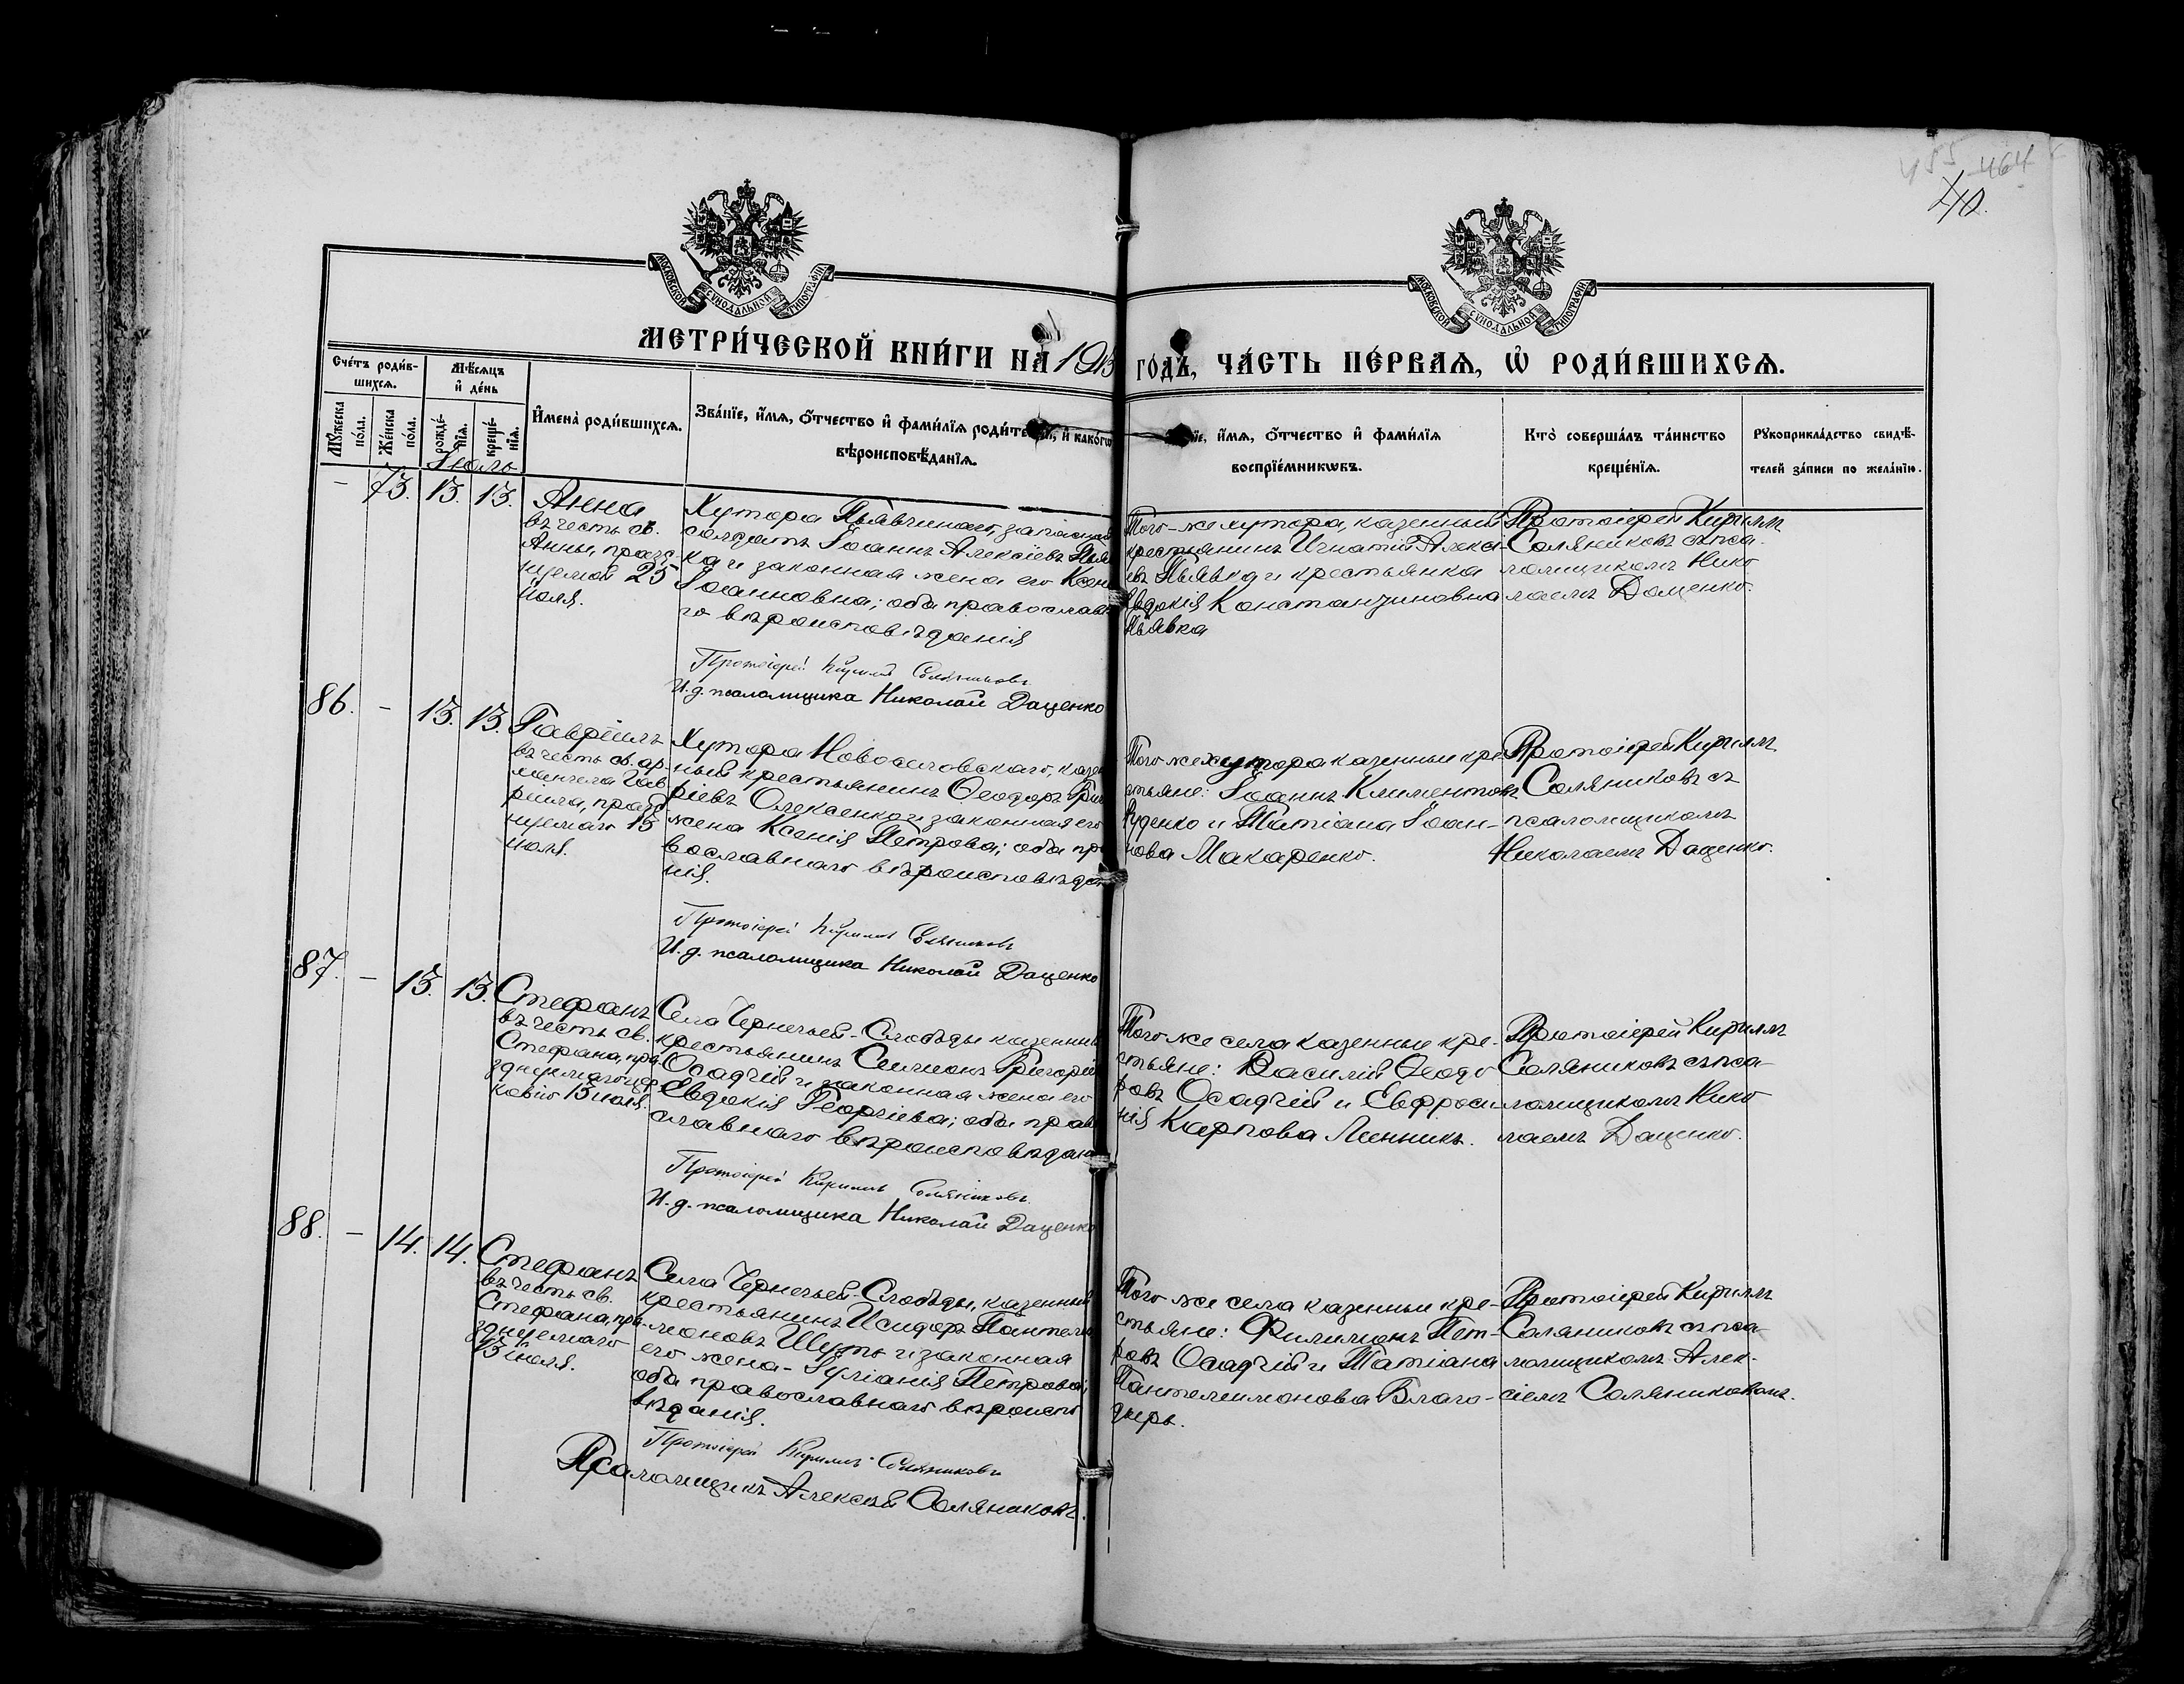 455 464
40.
МОСКОВСКОЙ СУНОДАЛЬНОЙ ТИПОГРАФІИ
МОСКОВСКОЙ СУНОДАЛЬНОЙ ТИПОГРАФІИ
МЕТРИ́ЧЕСКОЙ КНИ́ГИ НА 1913 ГОДЪ, ЧА́СТЬ ПЕ́РВАЯ, Ѡ҆ РОДИ́ВШИХСЯ.
Сче́тъ роди́в-
шихся.
Мꙋ́жеска
по́ла.
Же́нска
по́ла.
Мѣ́сяцъ
и҆ де́нь
рожде́-
нїя.
креще́-
нїя.
И҆мена̀ роди́вшихся.
Зва́нїе, и҆́мя, ѻ҆́тчество и҆ фами́лїя роди́те и҆ како́гѡ
вѣроисповѣ́данїя.
їе, и҆́мя, ѻ҆́тчество и҆ фами́лїя
воспрїе́мникѡвъ.
Кто̀ соверша́лъ та́инство
креще́нїя.
Рꙋкоприкла́дство свидѣ́-
телей за́писи по жела́нїю.
Іюль
– 73. 13. 13.
Анна
въ честь св.
Анны, празд-
нуемой 25
іюля.
Хутора Пьявчинаго, запасный
солдатъ Іоаннъ Алексіевъ Пьяв
ка и законная жена его Ксен
Іоанновна; оба православ
го вѣроисповѣданія
Протоіерей Кириллъ Соляниковъ
И. д. псаломщика Николай Даценко
Того-же хутора, казенный
крестьянинъ Игнатій Алексі-
евъ Пьявка и крестьянка
Евдокія Константиновна
Пьявка
Протоіерей Кириллъ
Соляниковъ съ пса-
ломщикомъ Нико
лаемъ Даценко.
86. – 13. 13.
Гавріилъ
въ честь св. ар-
хангела Гав
ріила, празд
нуемаго 13
іюля.
Хутора Новоселовскаго, казен
ный крестьянинъ Ѳеодоръ Григ
ріевъ Олексенко и законная его
жена Ксенія Петрова; оба пр
вославнаго вѣроисповѣда
нія.
Протоіерей Кириллъ Соляниковъ
И. д. псаломщика Николай Даценко
Того же хутора казенные кре
стьяне: Іоаннъ Климентов
Руденко и Татіана Іоан-
нова Макаренко.
Протоіерей Кириллъ
Соляниковъ съ
псаломщикомъ
Николаемъ Даценко.
87. – 13. 13.
Стефанъ
въ честь св.
Стефана, пра
зднуемаго цер
ковію 13 іюля.
Села Чернечьей-Слободы казенный
крестьянинъ Симіонъ Григорі
Осадчій и законная жена его
Евдокія Георгіева; оба прав
славнаго вѣроисповѣдан
Протоіерей Кириллъ Соляниковъ
И. д. псаломщика Николай Даценко
Того же села казенные кре-
стьяне: Василій Ѳеодо
ровъ Осадчій и Евфроси
нія Карпова Линникъ.
Протоіерей Кириллъ
Соляниковъ съ пса-
ломщикомъ Нико
лаемъ Даценко.
88. – 14. 14.
Стефанъ
въ честь св.
Стефана, пра-
зднуемаго
13 іюля.
Села Чернечьей-Слободы, казенный
крестьянинъ Исидоръ Пантелеи
моновъ Шуть и законная
его жена - Іуліанія Петрова;
оба православнаго вѣроиспо
вѣданія.
Протоіерей Кириллъ Соляниковъ
Псаломщикъ Алексѣй Соляниковъ.
Того же села казенные кре-
стьяне: Филимонъ Пет-
ровъ Осадчій и Татіана
Пантелеимонова Благо-
дырь.
Протоіерей Кириллъ
Соляниковъ съ пса-
ломщикомъ Алек-
сіемъ Соляниковымъ.